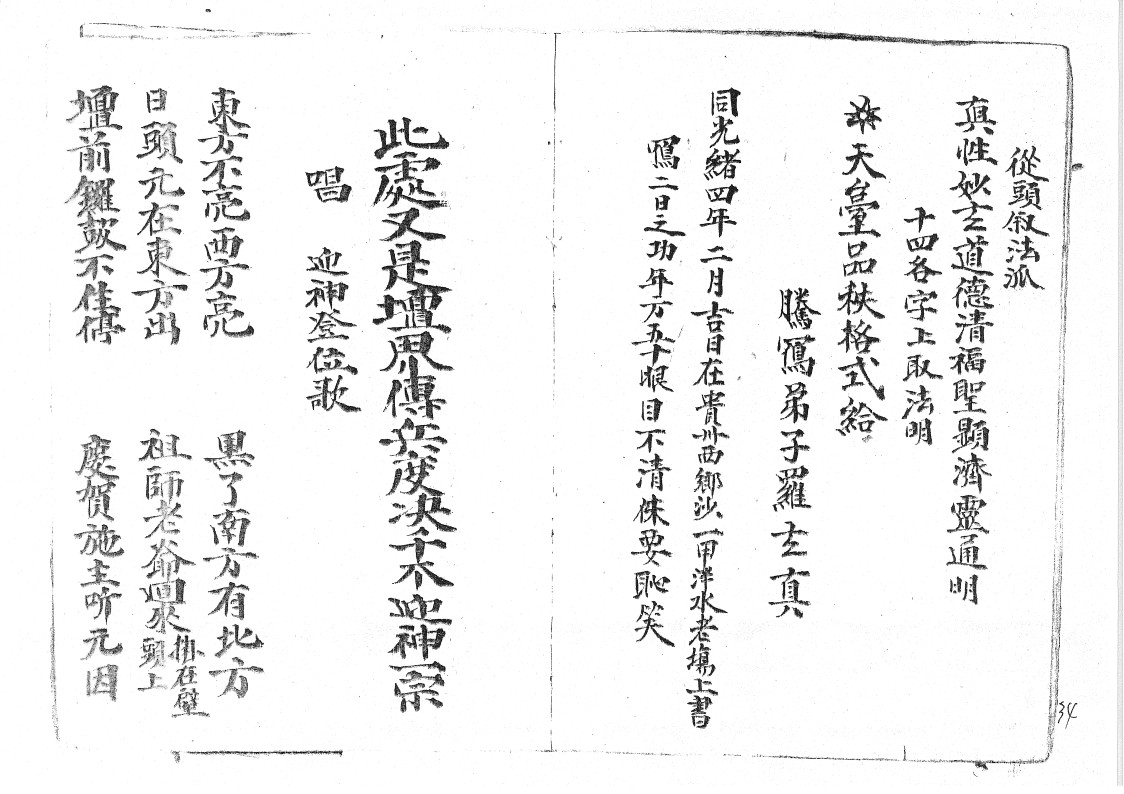 從頭叙法派
真性妙玄道德清福聖顯濟靈通明
十四各字上取法明
天臺品秩格式給
騰寫弟子羅玄真
同光緒四年二月吉日在貴州西鄉沙一甲洋水老塲上書
寫二日之功年方五十眼目不清休要恥笑
此處又是壇界傳兵度决千不迎神一宗
唱 迎神登位歌
東方不亮西方亮 黑了南方有北方
日頭元在東方出 祖師老爺迴來掛在壁頭上
壇前鑼鼓不住停 慶賀施主听元因
34